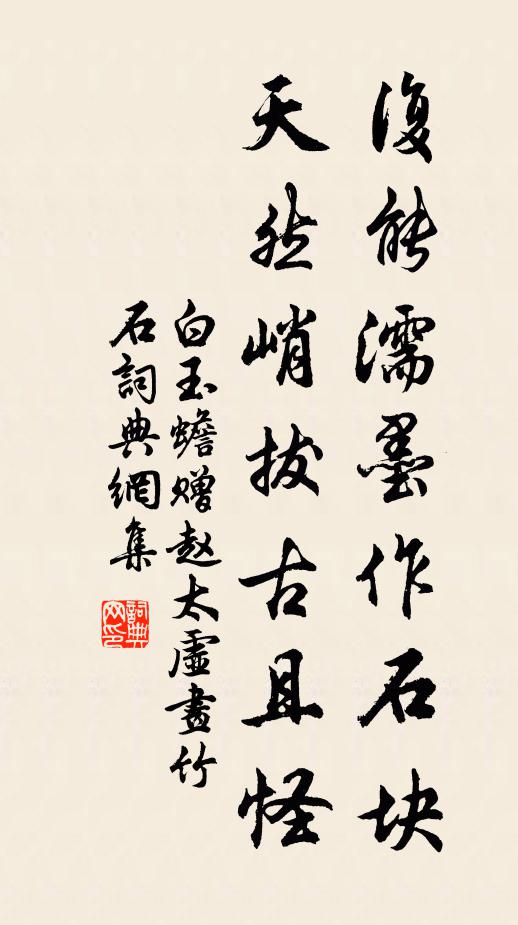 復能濡墨作石块
天然峭拔古且怪
白玉蟾赠赵太虛畫竹
石詞典網集
詞典网印